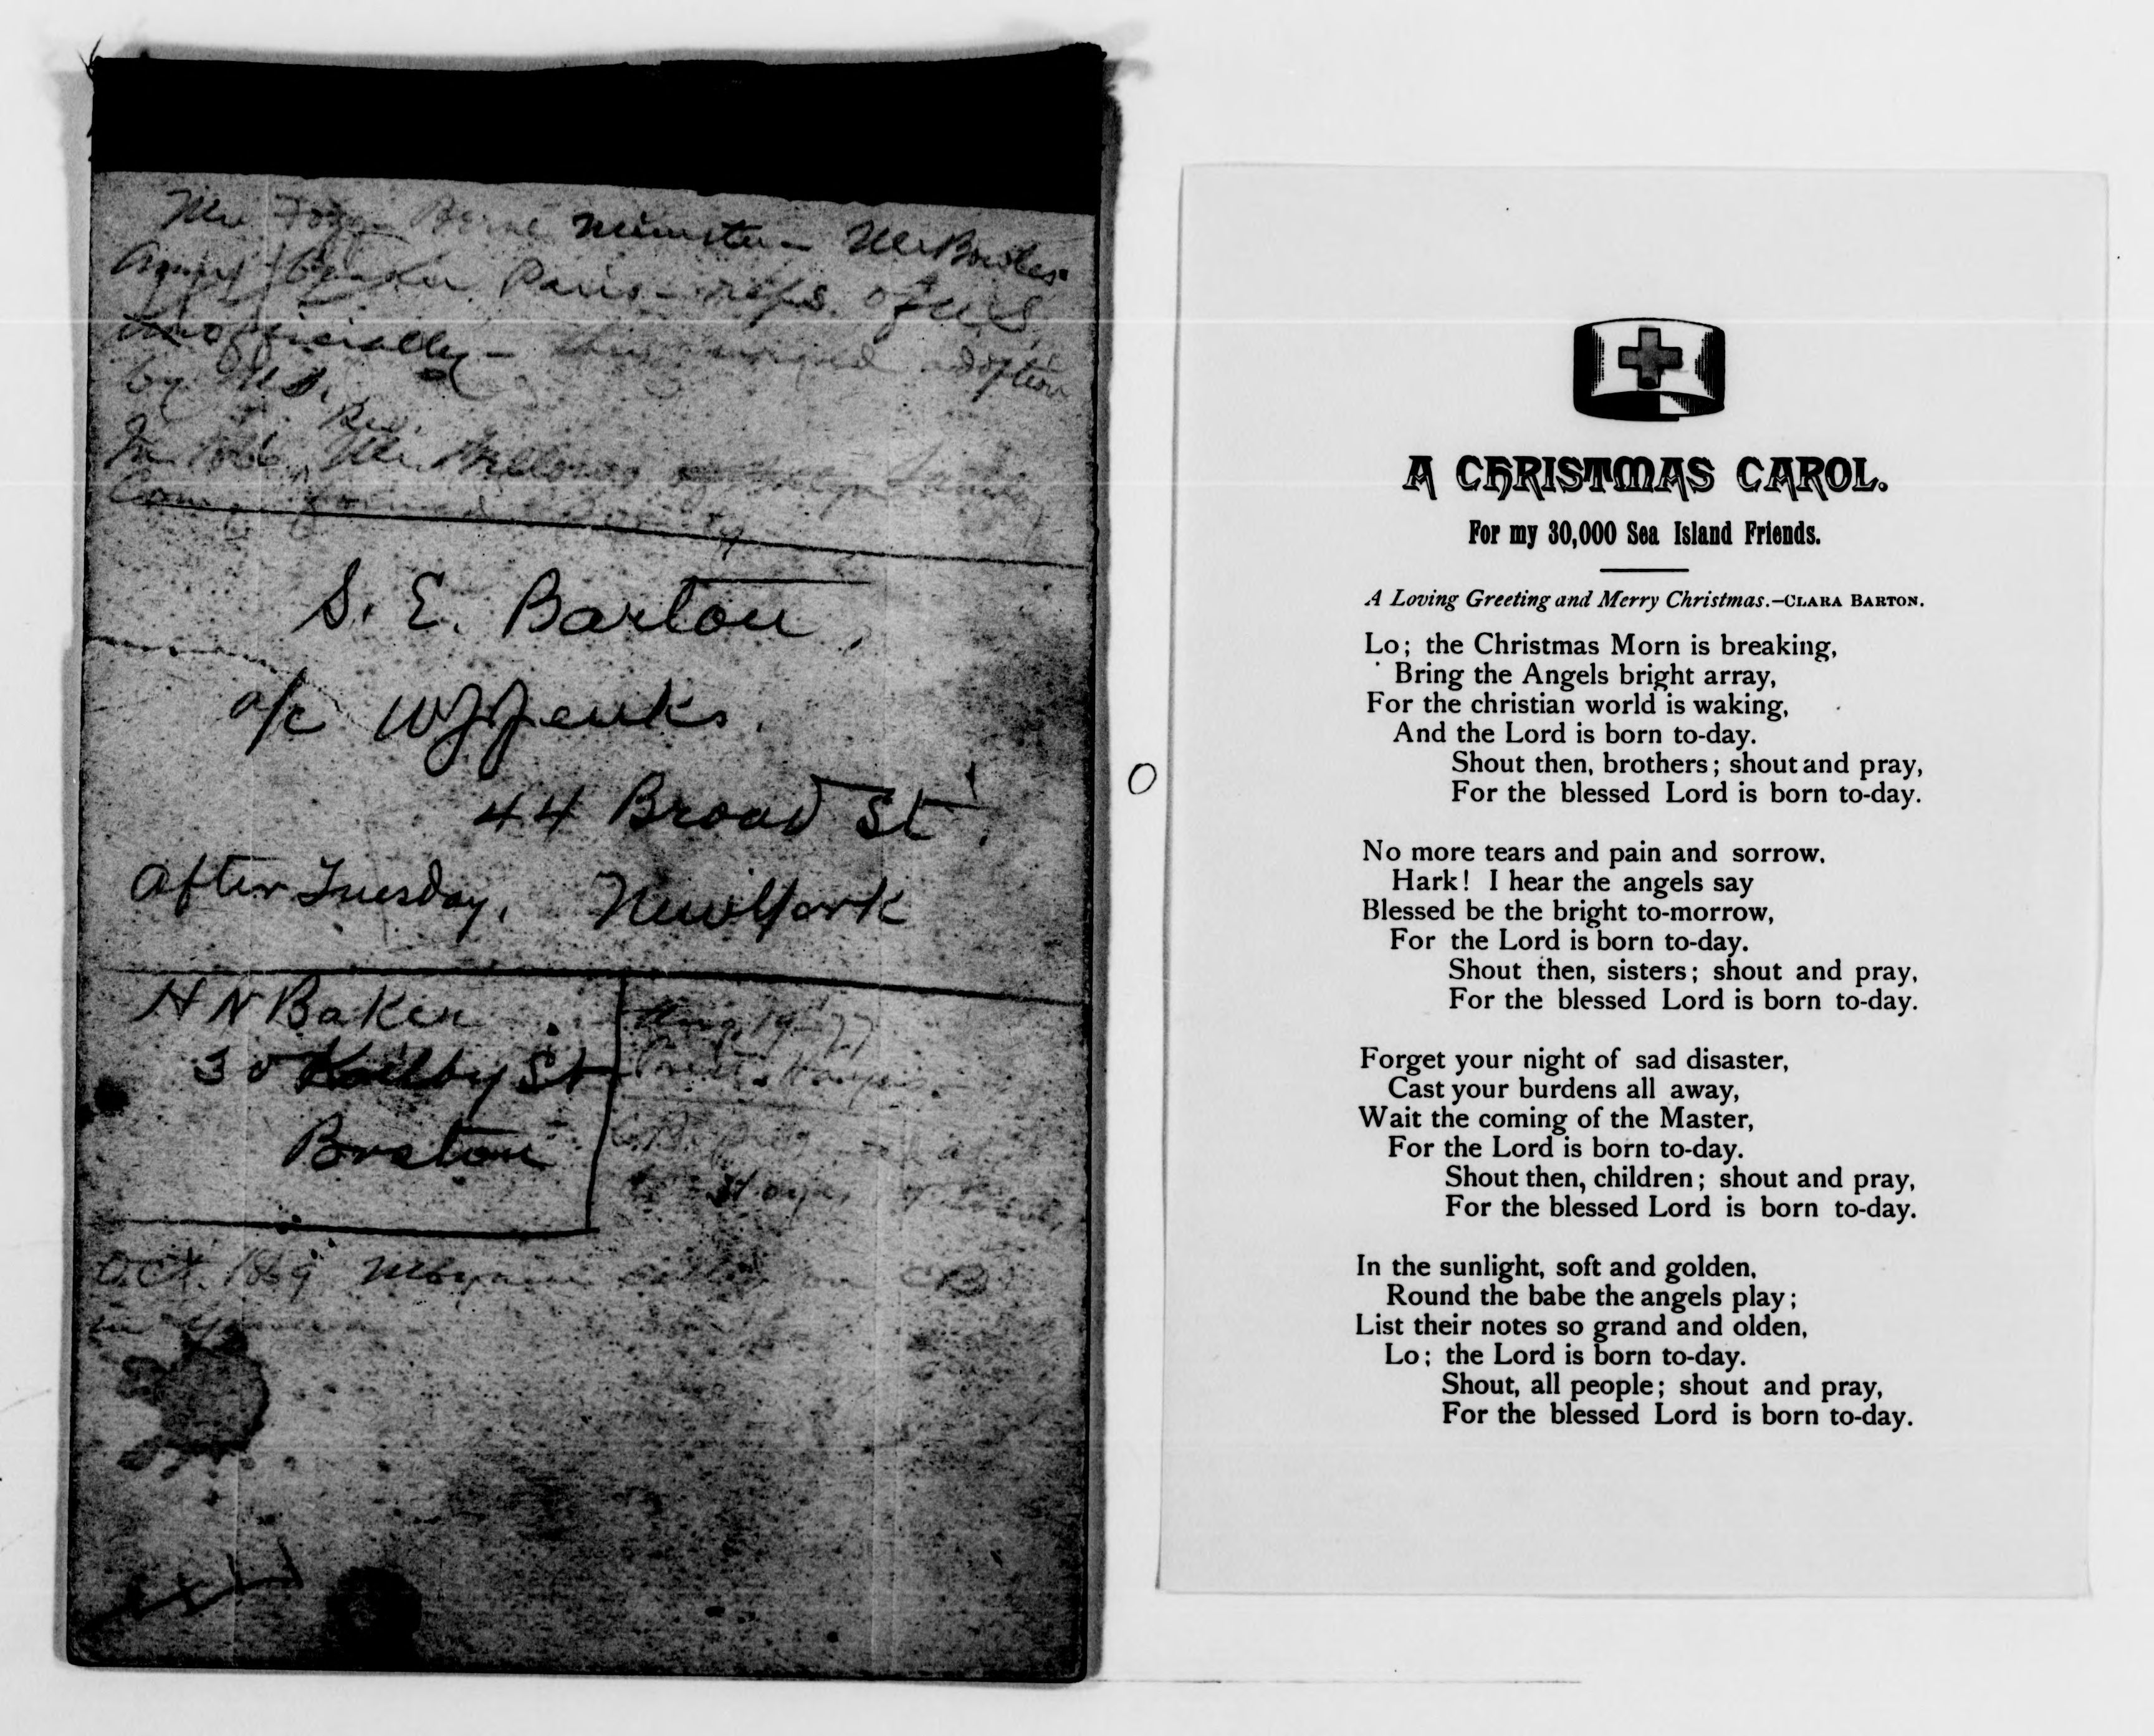 Mr Fogg Berne minister - Mr Bowles
Paris - reps. of U.S.
unofficially - urged adoption
by U.S.
Rev.
In 1866, Mr. Bellows
Com. formed Society
S. E. Barton,
a/c W J Jenks.
44 Broad St.
After Tuesday, New York
H N Baker
30 Kilby St
Boston
Aug 19-77
Pres. Hayes.
C.B.
Oct. 1869 Moynier called on CB
in Geneva
A CHRISTMAS CAROL.
For my 30,000 Sea Island Friends.
A Loving Greeting and Merry Christmas.—CLARA BARTON.
Lo; the Christmas Morn is breaking,
Bring the Angels bright array,
For the christian world is waking,
And the Lord is born to-day.
Shout then, brothers; shout and pray,
For the blessed Lord is born to-day.
No more tears and pain and sorrow.
Hark! I hear the angels say
Blessed be the bright to-morrow,
For the Lord is born to-day.
Shout then, sisters; shout and pray,
For the blessed Lord is born to-day.
Forget your night of sad disaster,
Cast your burdens all away,
Wait the coming of the Master,
For the Lord is born to-day.
Shout then, children; shout and pray,
For the blessed Lord is born to-day.
In the sunlight, soft and golden,
Round the babe the angels play;
List their notes so grand and olden,
Lo; the Lord is born to-day.
Shout, all people; shout and pray,
For the blessed Lord is born to-day.